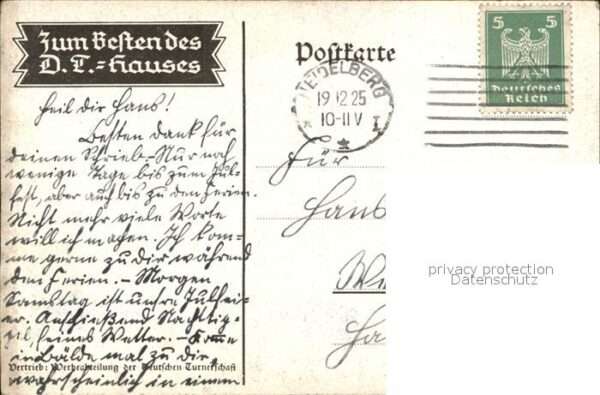 Zum Besten des
D. T.=Hauses
Heil dir Hans!
Besten Dank für
deinen Schrieb. – Nur noch
wenige Tage bis zum Jul-
fest, aber auch bis zu den Ferien.
Nicht mehr viele Worte
will ich machen. Ich kom-
me gerne zu dir während
den Ferien. – Morgen
Samstag ist unsre Julfei-
er. Anschießend
feines Wetter. – Komme
in Bälde mal zu dir,
Vertrieb: Werbeabteilung der Deutschen Turnerschaft
wahrscheinlich in einem
Postkarte
HEIDELBERG
19 12 25
10-11 V
* * I
5 5
Deutsches
Reich
Für
Hans
privacy protection
Datenschutz